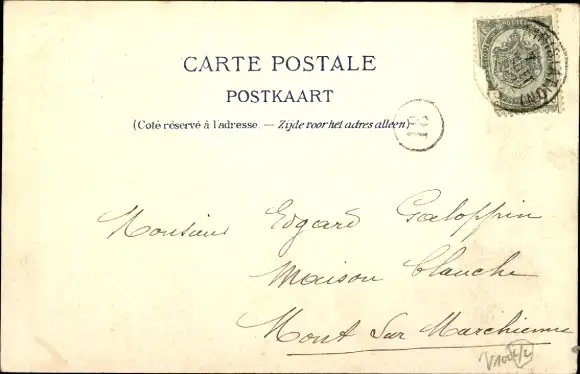 CARTE POSTALE
POSTKAART
(Coté réservé à l'adresse. — Zijde voor het adres alleen)
18
Monsieur Edgard Galoppin
Maison blanche
Mont Sur Marchienne